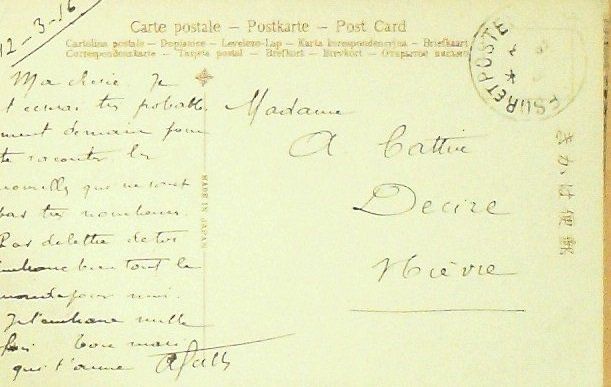 12-3-16
Carte postale – Postkarte – Post Card
Cartolina postale – Dopisnice – Levelezo-Lap – Karta korespondencyjna – Briefkaart
Correspondenskarte – Tarjeta postal – Brefkort – Brevkort –
TRESOR ET POSTES
MADE IN JAPAN
きかは便郵
Ma cherie. Je
t'ecrirai tres probable
ment demain pour
te raconter les
nouvelles qui ne sont
pas tres nombreuses.
Pas de lettre de toi
embrasse bien tout le
monde pour moi.
Je t'embrasse mille
fois ton mari
qui t'aime
Madame
A
Decize
Nièvre